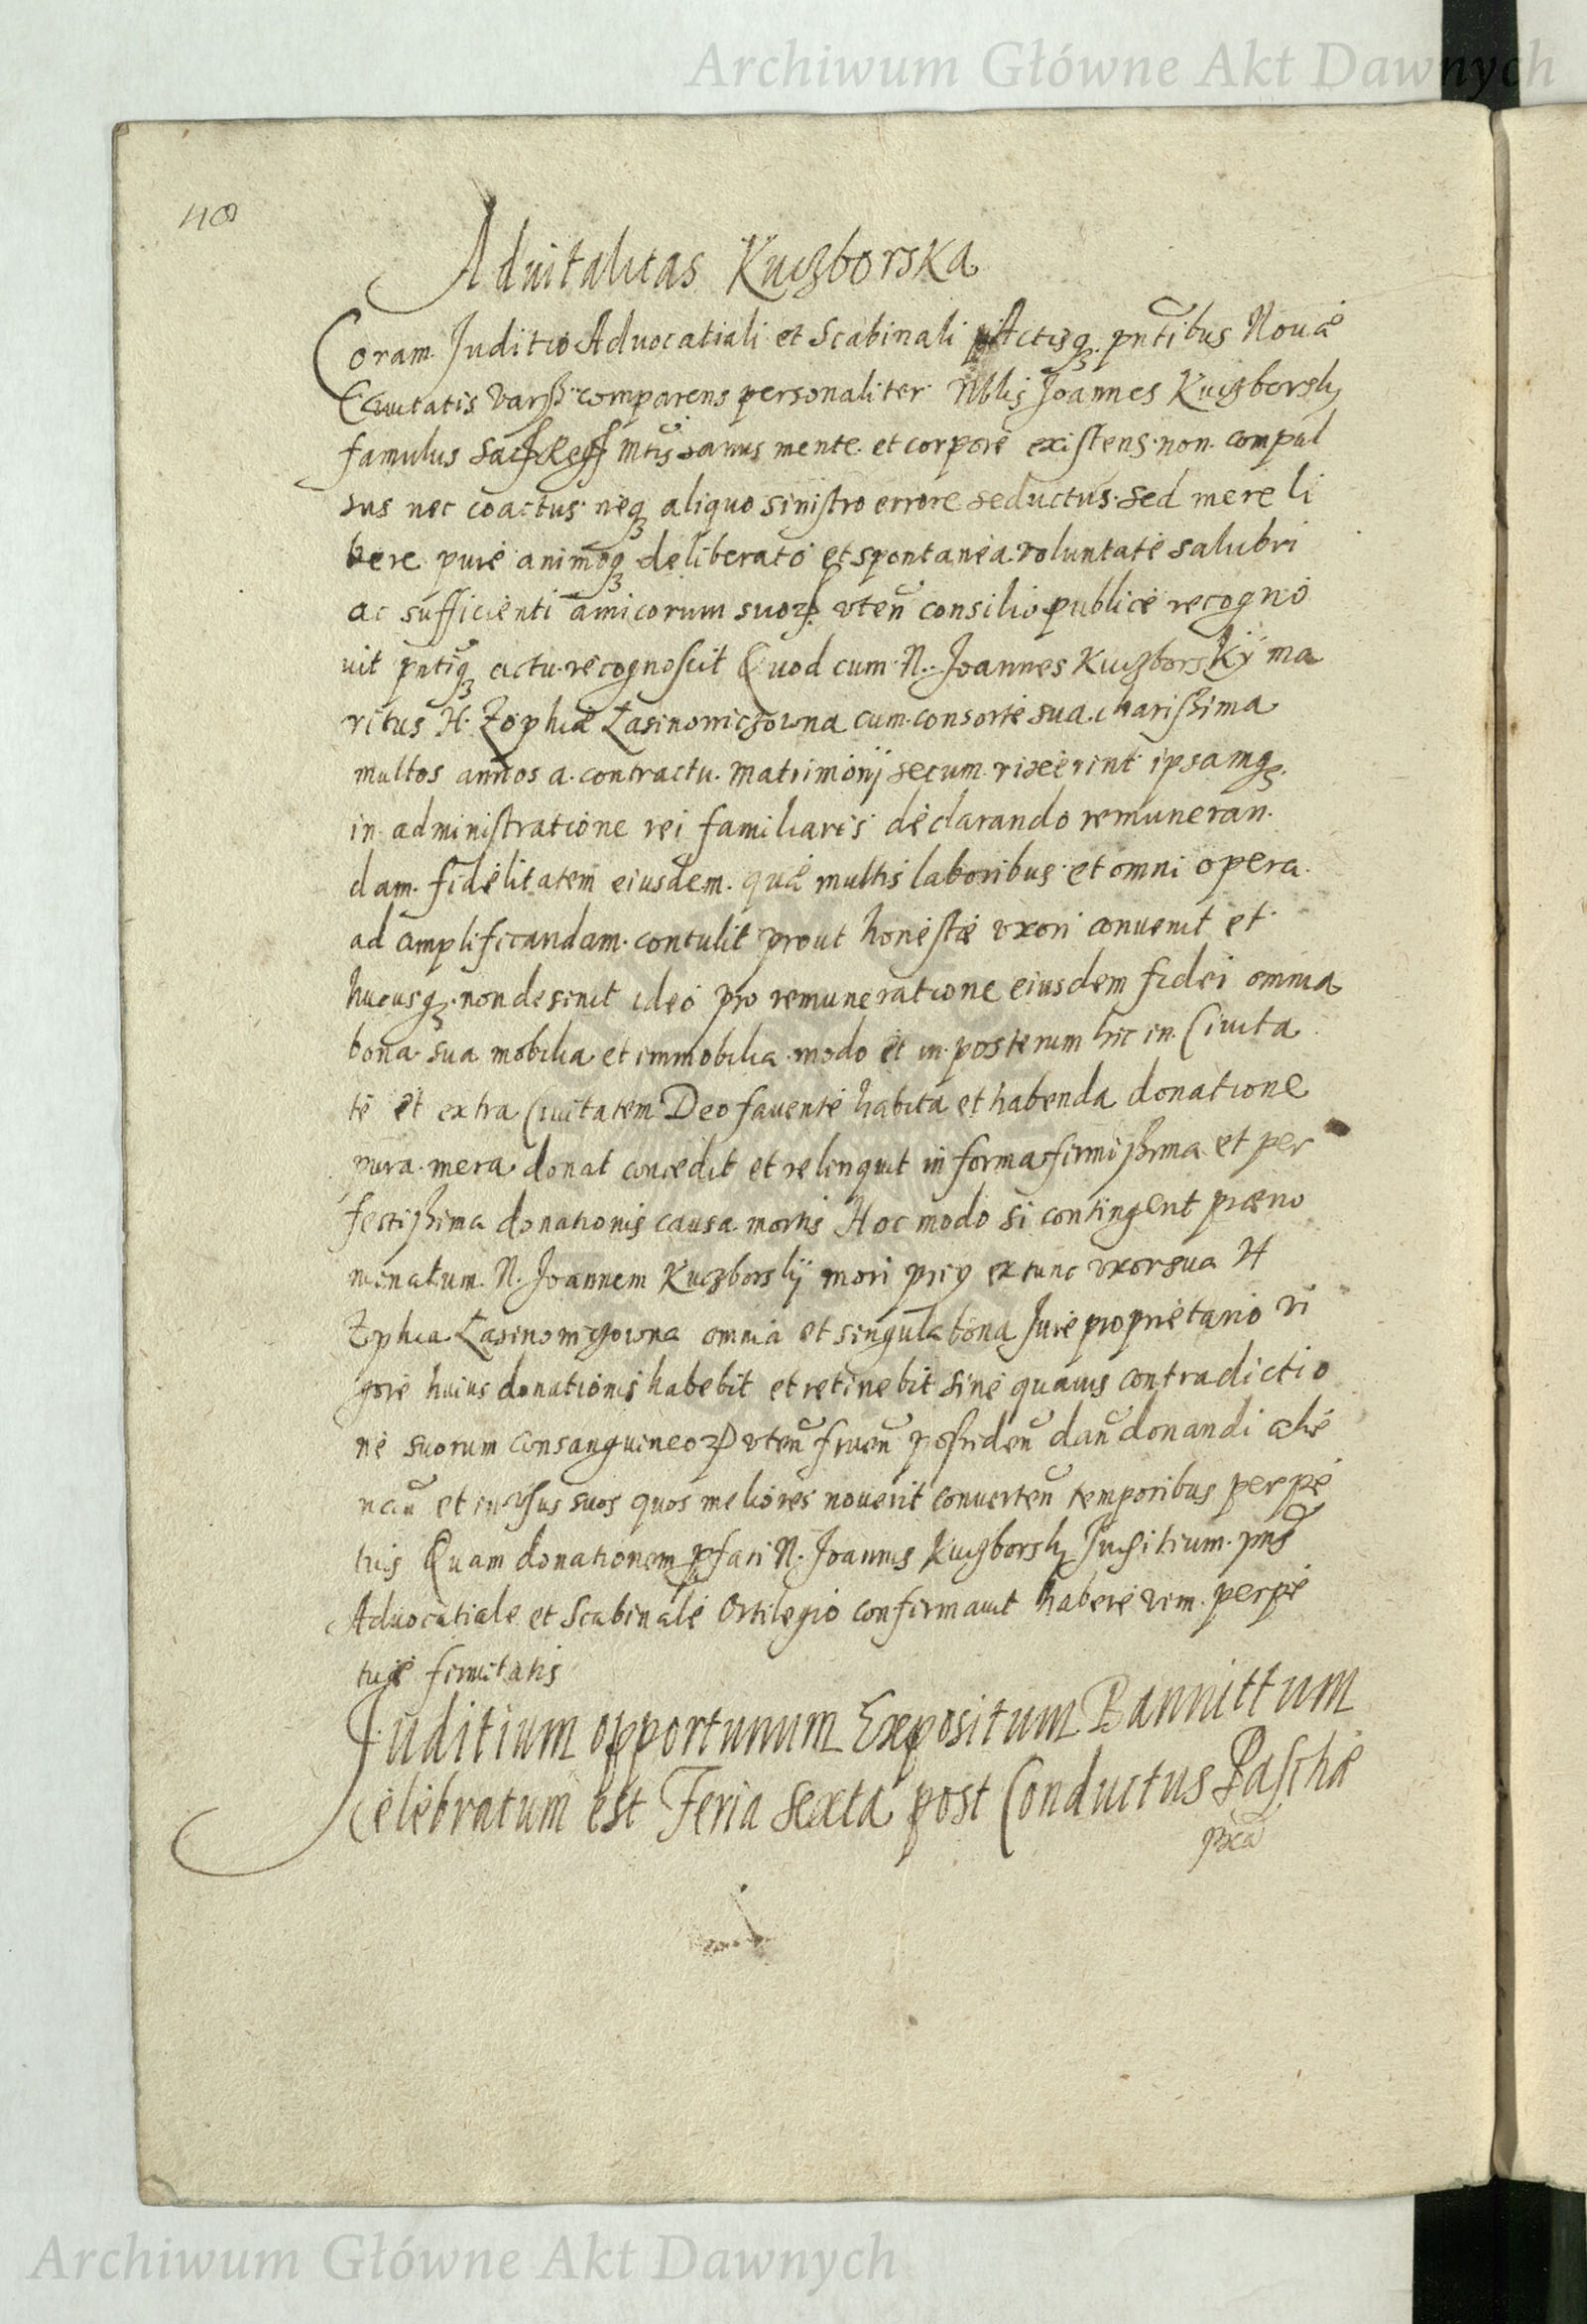 Archiwum Główne Akt Dawnych
48
Aduitalitas Kuczborska
Coram Juditio Aduocatiali et Scabinali Actisq pntibus Nouæ
Ciuitatis Varss comparens personaliter Nblis Joannes Kuczborsky
famulus Sac Reg Mtis sanus mente et corpore existens non compul
sus nec coactus neq aliquo sinistro errore seductus sed mere li
bere pure animoq deliberato et spontanea voluntate salubri
ac sufficienti amicorum suor vten consilio publice recogno
uit pntiq actu recognoscit Quod cum N. Joannes Kuczborskÿ ma
ritus H. Zophiæ Łasinowiczowna cum consorte sua charissima
multos annos a contractu matrimonij secum vixerint ipsamq
in administratione rei familiaris declarando remuneran
dam fidelitatem eiusdem quæ multis laboribus et omni opera
ad amplificandam contulit prout honestæ vxori conuenit et
hucusq non desinit ideo pro remuneratione eiusdem fidei omnia
bona sua mobilia et immobilia modo et in posterum hic in Ciuita
te et extra Ciuitatem Deo fauente habita et habenda donatione
pura mera donat concedit et relinquit in forma firmissima et per
fectissima donationis causa mortis Hoc modo si contingerit præno
minatum N. Joannem Kuczborskÿ mori extunc vxor sua H
Zophia Łasinowiczowna omnia et singula bona Jure proprietario vi
gore huius donationis habebit et retinebit sine quauis contradictio
ne suorum consanguineor vten fruen possiden dan donandi alie
nan et in vsus suos quos meliores nouerit conuerten temporibus perpe
tuis Quam donationem pfati N. Joannis Kuczborsky Juditium pns
Aduocatiale et Scabinale Ortilegio confirmauit habere vim perpe
tuæ firmitatis
Juditium opportunum Expositum Bannittum
celebratum est Feria sexta post Conductus Paschæ
Archiwum Główne Akt Dawnych